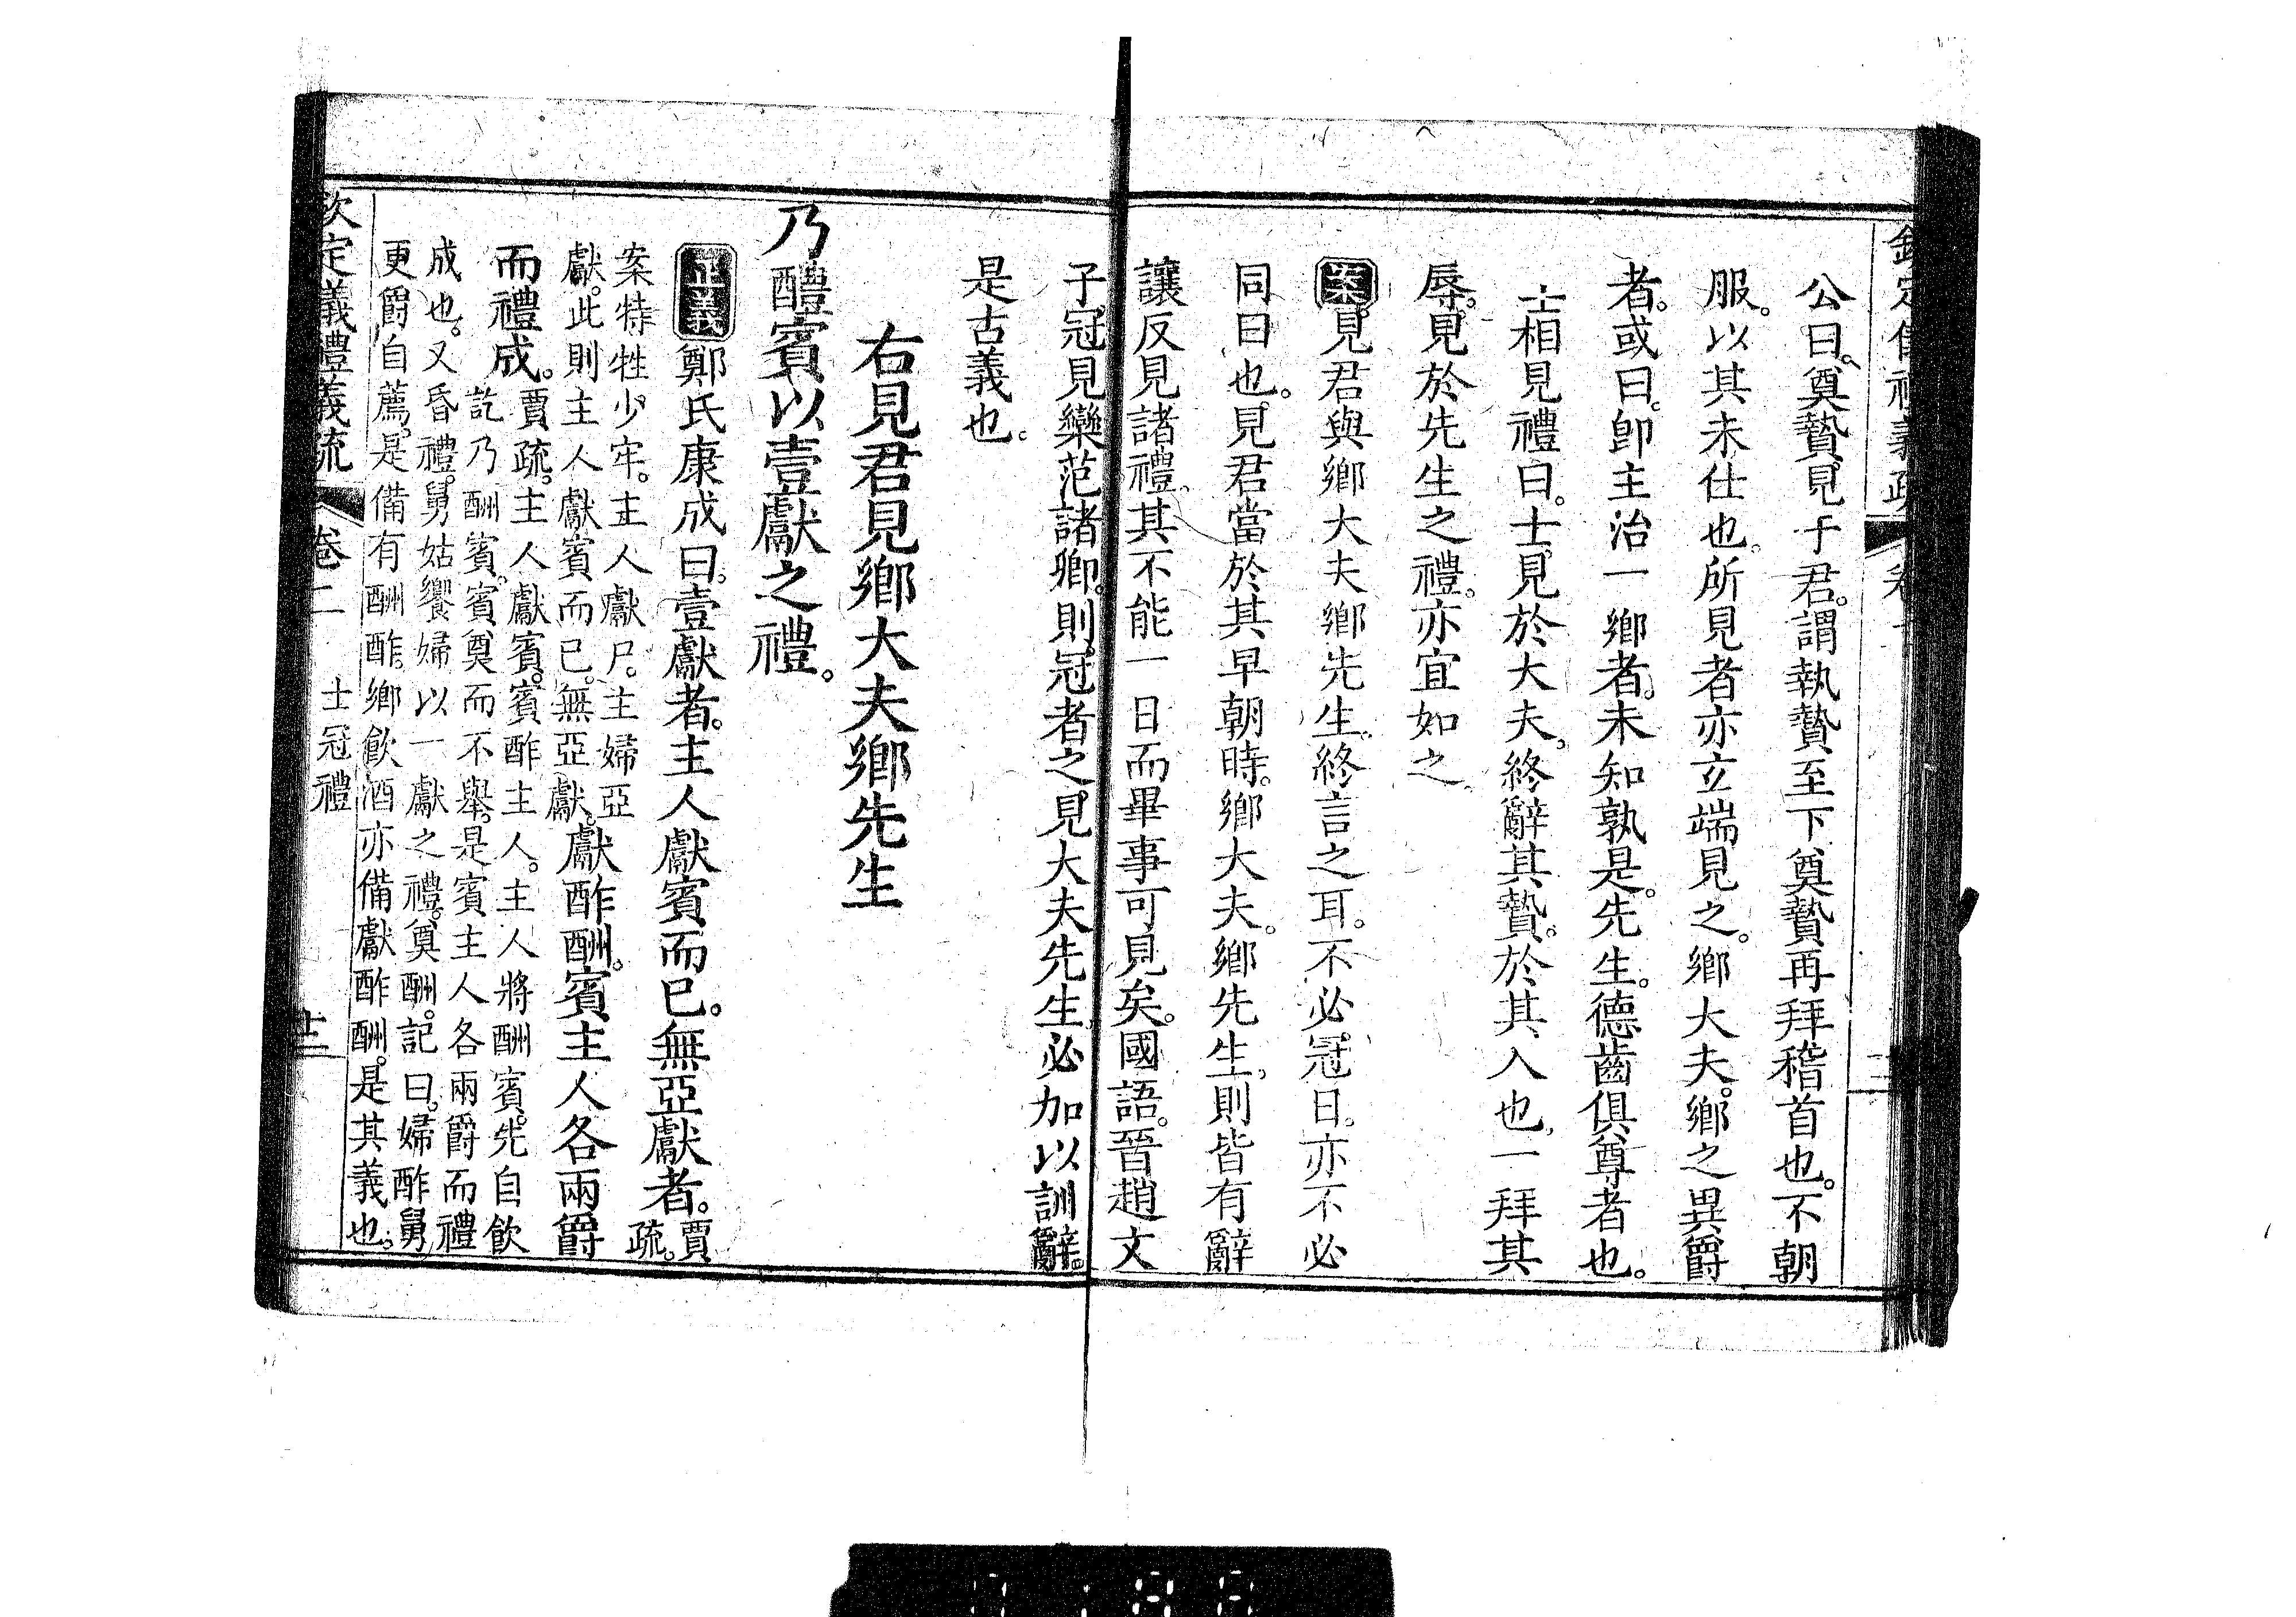 公曰。奠贄見于君。謂執贄至下奠贄再拜稽首也。不朝
服。以其未仕也。所見者亦立端見之。鄉大夫。鄉之異爵
者。或曰。卽主治一鄉者。未知孰是。先生。德齒俱尊者也。
士相見禮曰。士見於大夫。終辭其贄。於其入也。一拜其
辱。見於先生之禮。亦宜如之。
案。見君與鄉大夫鄉先生。終言之耳。不必冠日。亦不必
同日也。見君當於其早朝時。鄉大夫。鄉先生。則皆有辭
讓反見諸禮。其不能一日而畢事可見矣。國語。晉趙文
子冠。見欒范諸卿。則冠者之見大夫先生。必加以訓辭。
是古義也。
右見君見鄉大夫鄉先生
乃醴賓以壹獻之禮。
正義鄭氏康成曰。壹獻者。主人獻賓而已。無亞獻者。賈疏。
案特牲少牢。主人獻尸。主婦亞
獻。此則主人獻賓而已。無亞獻。獻酢酬。賓主人各兩爵
而禮成。賈疏。主人獻賓。賓酢主人。主人將酬賓。先自飲
訖乃酬賓。賓奠而不舉。是賓主人各兩爵而禮
成也。又昏禮。舅姑饗婦以一獻之禮。奠酬。記曰。婦酢舅
更爵自薦。是備有酬酢。鄉飲酒亦備獻酢酬。是其義也。
欽定義禮義疏 卷二 士冠禮